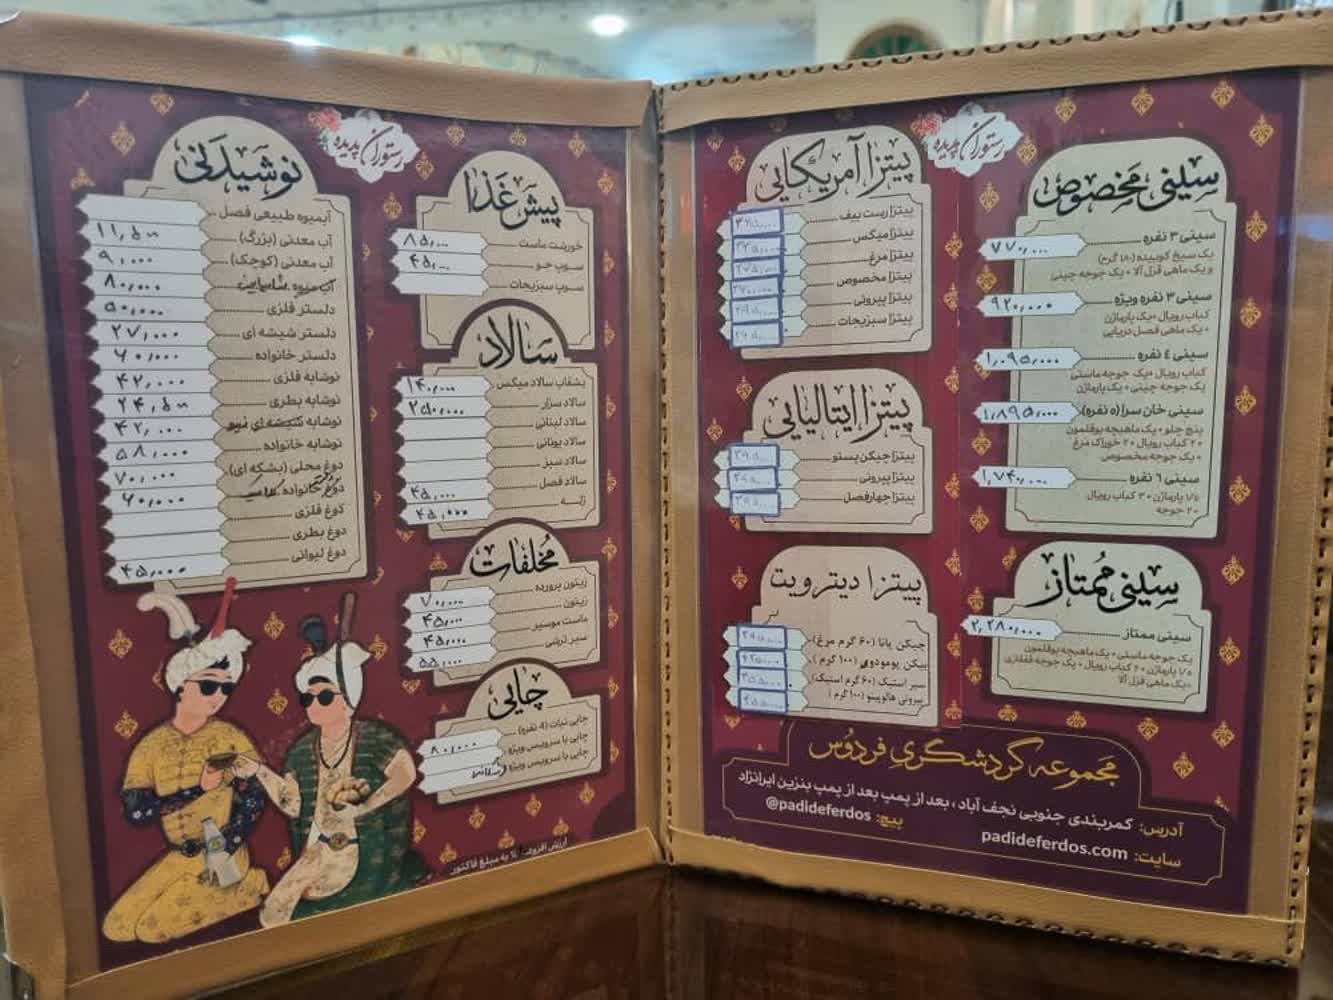 رستوران پدیده
سینی مخصوص
سینی ۳ نفره ۷۷۰,۰۰۰
یک سیخ کوبیده (۱۸۰ گرم)
و یک ماهی قزل آلا + یک جوجه چینی
سینی ۳ نفره ویژه ۹۲۰,۰۰۰
کباب رویال + یک پارماژن
+ یک ماهی فصل دریایی
سینی ٤ نفره ۱,۰۹۵,۰۰۰
کباب رویال + یک جوجه ماستی
یک جوجه چینی + یک پارماژن
سینی خان سرا (٥ نفره) ۱,۸۹۵,۰۰۰
پنج چلو + یک ماهیچه بوقلمون
+ ۲ کباب رویال + ۲ خوراک مرغ
+ یک جوجه مخصوص
سینی ٦ نفره ۱,۷۴۰,۰۰۰
پارماژن + ۳ کباب رویال
+ ۲ جوجه
سینی ممتاز
سینی ممتاز ۲,۲۸۰,۰۰۰
یک جوجه ماستی + یک ماهیچه بوقلمون
پارماژن + ۲ کباب رویال + یک جوجه قفقازی
+ یک ماهی قزل آلا
پیتزا آمریکایی
پیتزا رست بیف
پیتزا میکس
پیتزا مرغ ۲۷۵,۰۰۰
پیتزا مخصوص
پیتزا پپرونی
پیتزا سبزیجات
پیتزا ایتالیایی
پیتزا چیکن پستو
پیتزا پپرونی
پیتزا چهارفصل
پیتزا دیترویت
چیکن پاتا (۶۰ گرم مرغ)
پیکن پومودوی (۱۰۰ گرم)
سیر استیک (۶۰ گرم استیک)
پپرونی هالوپینو (۱۰۰ گرم)
مجموعه گردشگری فردوس
آدرس: کمربندی جنوبی نجف آباد، بعد از پمپ بعد از پمپ بنزین ایرانژاد
پیج: @padideferdos
سایت: padideferdos.com
رستوران پدیده
پیش غذا
خورشت ماست ۸۵,۰۰۰
سوپ جو ۴۵,۰۰۰
سوپ سبزیجات
سالاد
بشقاب سالاد میکس ۱۴۰,۰۰۰
سالاد سزار ۲۵۰,۰۰۰
سالاد لبنانی
سالاد یونانی
سالاد سبز
سالاد فصل ۴۵,۰۰۰
ژله ۴۵,۰۰۰
مخلفات
زیتون پرورده ۷۰,۰۰۰
زیتون ۴۵,۰۰۰
ماست موسیر ۴۵,۰۰۰
سیر ترشی ۵۵,۰۰۰
چایی
چایی نبات (4 نفره)
چایی با سرویس ویژه ۸۰,۰۰۰
چایی با سرویس ویژه
ارزش افزوده به مبلغ فاکتور
نوشیدنی
آبمیوه طبیعی فصل
آب معدنی (بزرگ) ۱۱,۵۰۰
آب معدنی (کوچک) ۹,۰۰۰
آب میوه ۸۰,۰۰۰
دلستر فلزی ۵۰,۰۰۰
دلستر شیشه ای ۲۷,۰۰۰
دلستر خانواده ۶۰,۰۰۰
نوشابه فلزی ۴۲,۰۰۰
نوشابه بطری ۲۴,۵۰۰
نوشابه شیشه ای ۴۲,۰۰۰
نوشابه خانواده ۵۸,۰۰۰
دوغ محلی (بشکه ای) ۷۰,۰۰۰
دوغ خانواده ۶۰,۰۰۰
دوغ فلزی
دوغ بطری
دوغ لیوانی ۴۵,۰۰۰